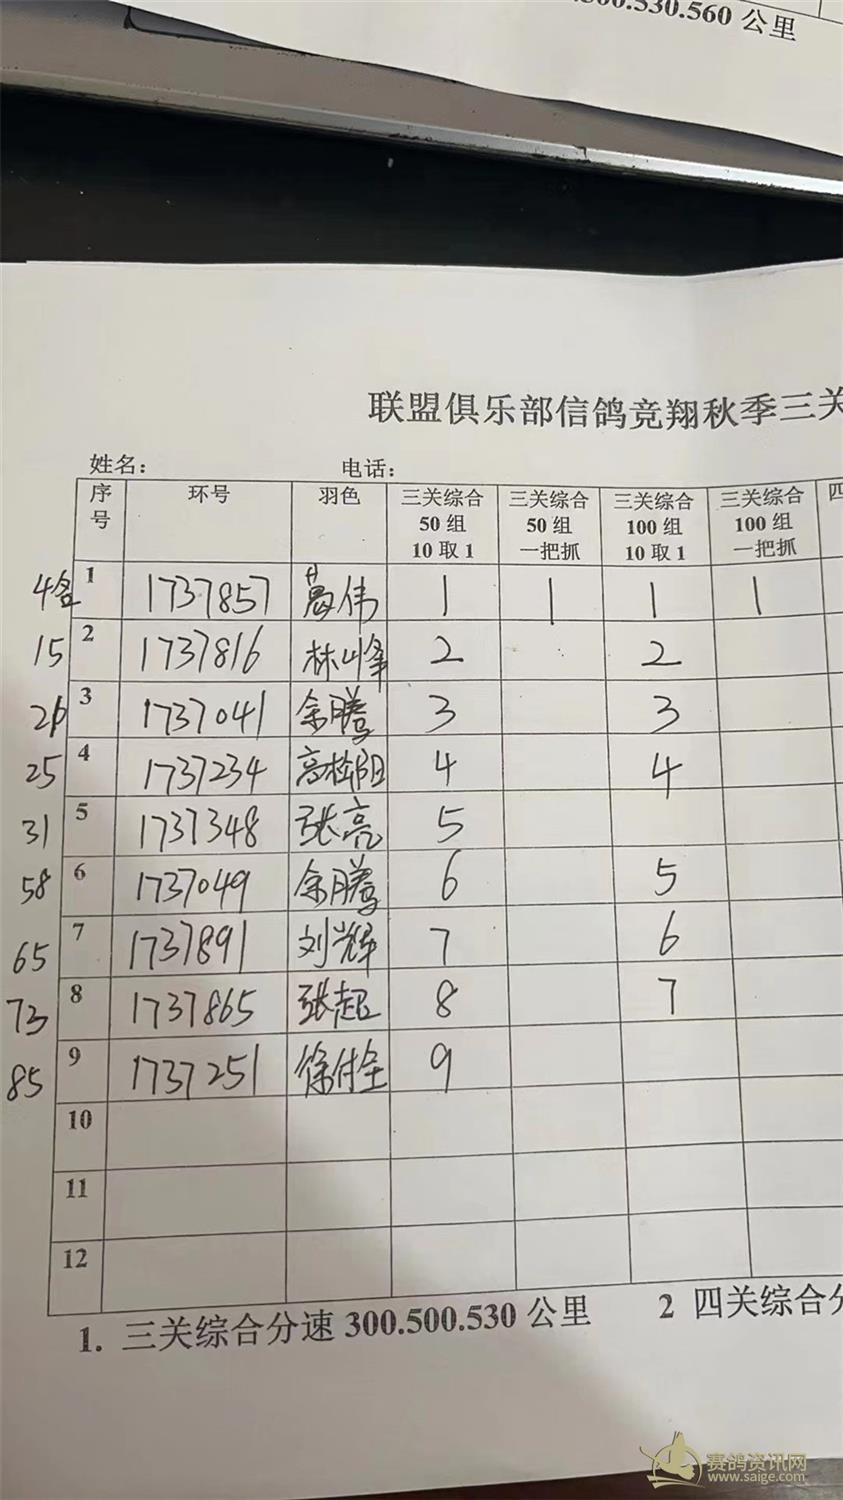 .500.530.560 公里
联盟俱乐部信鸽竞翔秋季三关
姓名： 电话：
序号 环号 羽色 三关综合 50 组 10 取 1 三关综合 50 组 一把抓 三关综合 100 组 10 取 1 三关综合 100 组 一把抓 四
4名 1 1737857 葛伟 1 1 1 1
15 2 1737816 林峰 2 2
21 3 1737041 余腾 3 3
25 4 1737234 高松阳 4 4
31 5 1737348 张亮 5
58 6 1737049 余腾 6 5
65 7 1737891 刘辉 7 6
73 8 1737865 张起 8 7
85 9 1737251 徐付全 9
10
11
12
1. 三关综合分速 300.500.530 公里 2 四关综合分
赛鸽资讯网
www.saige.com